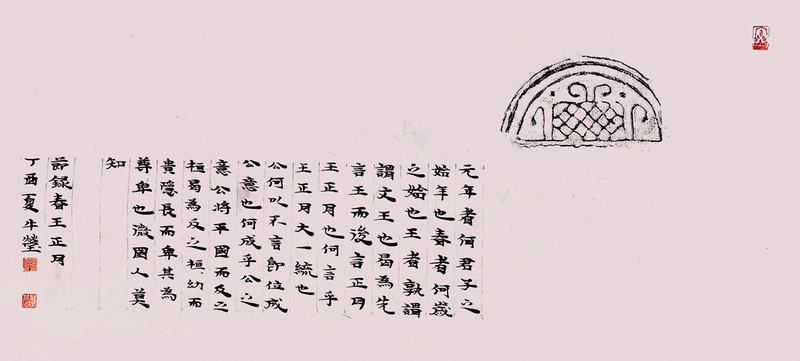 元年者何君子之
始年也春者何歲
之始也王者孰謂
謂文王也曷為先
言王而後言正月
王正月也何言乎
王正月大一統也
公何以不言即位成
公意也何成乎公之
意公將平國而反之
桓曷為反之桓幼而
貴隱長而卑其為
尊卑也微國人莫
知
節録春王正月
丁酉夏牛瑩